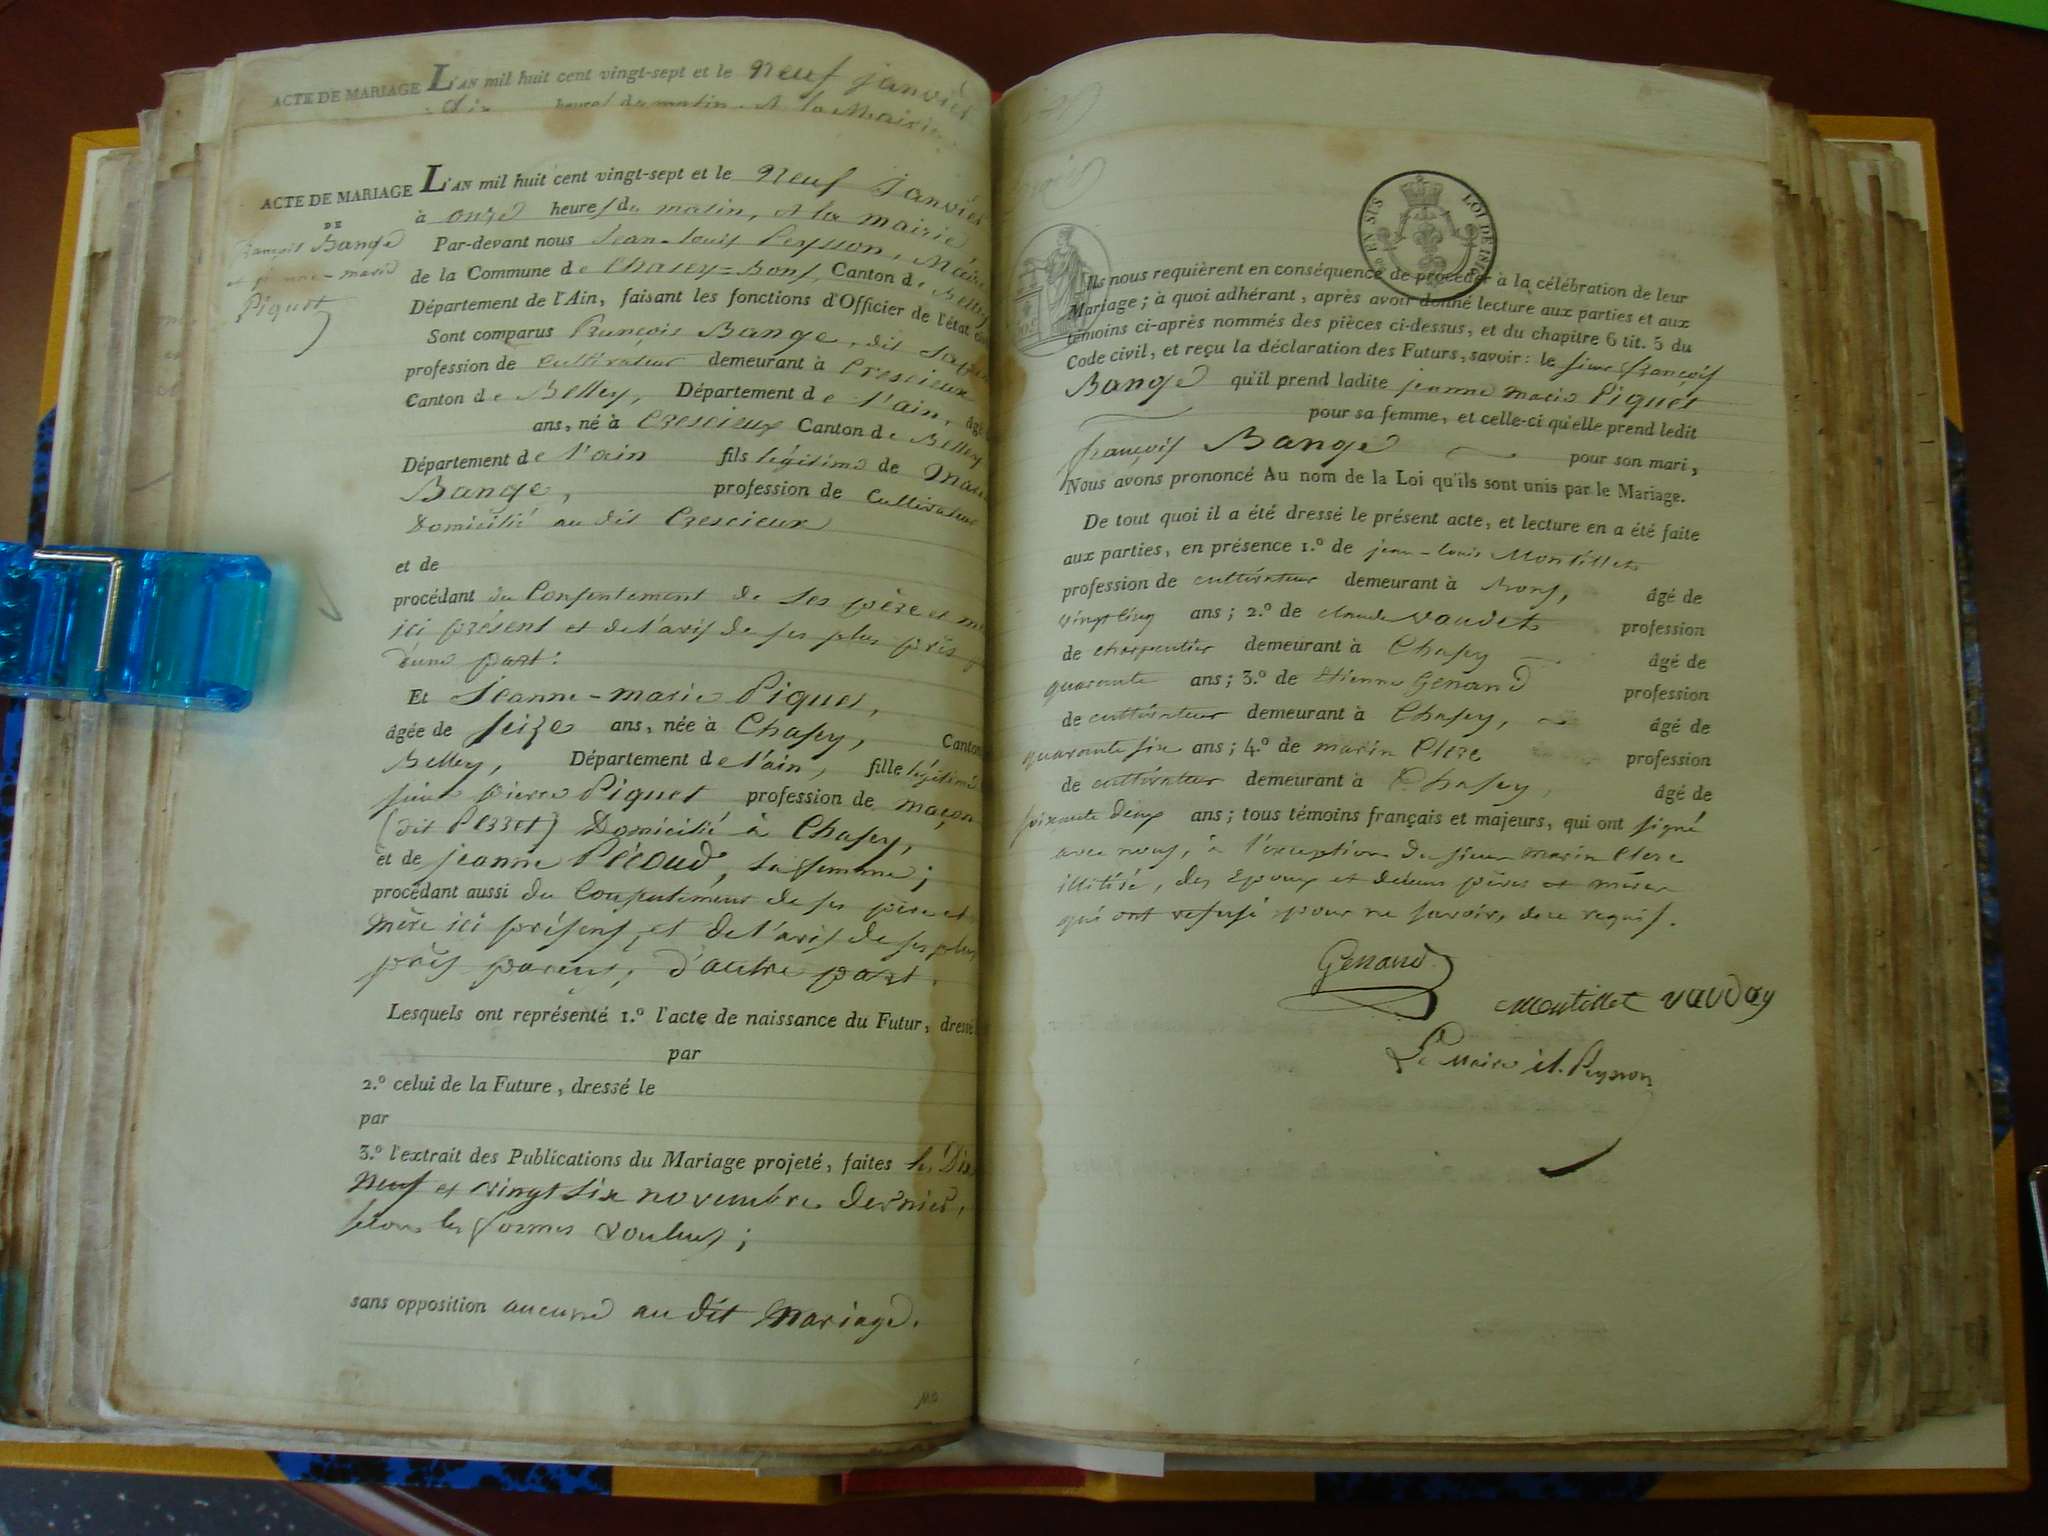 ACTE DE MARIAGE L'AN mil huit cent vingt-sept et le Neuf janvier
heures du matin. A la Mairie
ACTE DE MARIAGE L'AN mil huit cent vingt-sept et le Neuf Janvier
DE
françois Bange
et jeanne-marie
Piquet
à onze heures du matin, A la mairie
Par-devant nous Jean-Louis Peysson, Maire
de la Commune de Chasey=Bons, Canton de Belley
Département de l'Ain, faisant les fonctions d'Officier de l'état
Sont comparus François Bange, dit
profession de Cultivateur demeurant à Crescieux
Canton de Belley, Département de l'ain, âgé
ans, né à Crescieux Canton de Belley
Département de l'ain fils légitime de
Bange, profession de Cultivateur
Domicilié au dit Crescieux
et de
procédant du Consentement de ses père et
ici présent et de l'avis de ses plus près
d'une part.
Et Jeanne-marie Piquet,
âgée de seize ans, née à Chasey, Canton
Belley, Département de l'ain, fille légitime
sieur pierre Piquet profession de maçon
(dit Pesset) Domicilié à Chasey,
et de jeanne Pécoud, sa femme;
procédant aussi du Consentement de ses père et
mère ici présens, et de l'avis de ses plus
près parens, d'autre part.
Lesquels ont représenté 1.º l'acte de naissance du Futur, dressé
par
2.º celui de la Future, dressé le
par
3.º l'extrait des Publications du Mariage projeté, faites les Dix
Neuf et vingt six novembre dernier,
selon les formes voulues;
sans opposition aucune au dit Mariage.
LOI DE 1816
Ils nous requièrent en conséquence de procéder à la célébration de leur
Mariage; à quoi adhérant, après avoir donné lecture aux parties et aux
témoins ci-après nommés des pièces ci-dessus, et du chapitre 6 tit. 5 du
Code civil, et reçu la déclaration des Futurs, savoir: le sieur françois
Bange qu'il prend ladite jeanne marie Piquet
pour sa femme, et celle-ci qu'elle prend ledit
françois Bange pour son mari,
Nous avons prononcé Au nom de la Loi qu'ils sont unis par le Mariage.
De tout quoi il a été dressé le présent acte, et lecture en a été faite
aux parties, en présence 1.º de jean-louis Montillet
profession de cultivateur demeurant à Bons, âgé de
vingt cinq ans; 2.º de claude vaudet profession
de charpentier demeurant à Chasey âgé de
quarante ans; 3.º de Etienne Genand profession
de cultivateur demeurant à Chasey, âgé de
quarante six ans; 4.º de marin Clerc profession
de cultivateur demeurant à Chasey, âgé de
soixante deux ans; tous témoins français et majeurs, qui ont signé
avec nous, à l'exception du sieur marin Clerc
illitéré, des Epoux et pères et mères
qui ont refusé pour ne savoir, de ce requis.
Genand
Montillet vauday
Le Maire Peysson